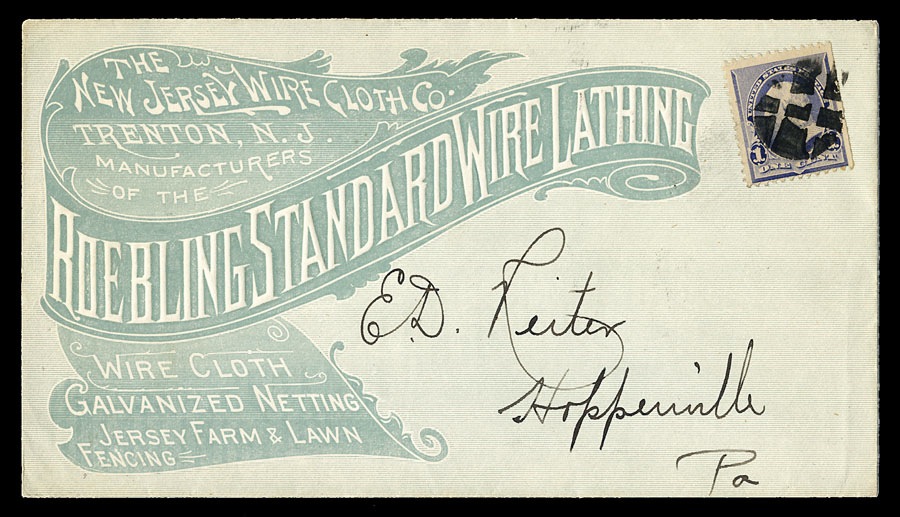 THE
NEW JERSEY WIRE CLOTH CO.
TRENTON, N. J.
MANUFACTURERS
OF THE
ROEBLING STANDARD WIRE LATHING
WIRE CLOTH
GALVANIZED NETTING
JERSEY FARM & LAWN
FENCING
UNITED STATES
1
ONE CENT
E.D. Reiter
Hoppenville
Pa